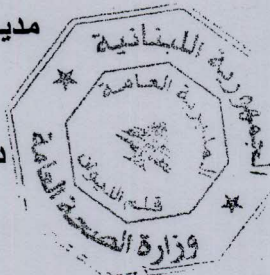 الجمهورية اللبنانية
المديرية العامة
قلم الديوان
وزارة الصحة العامة